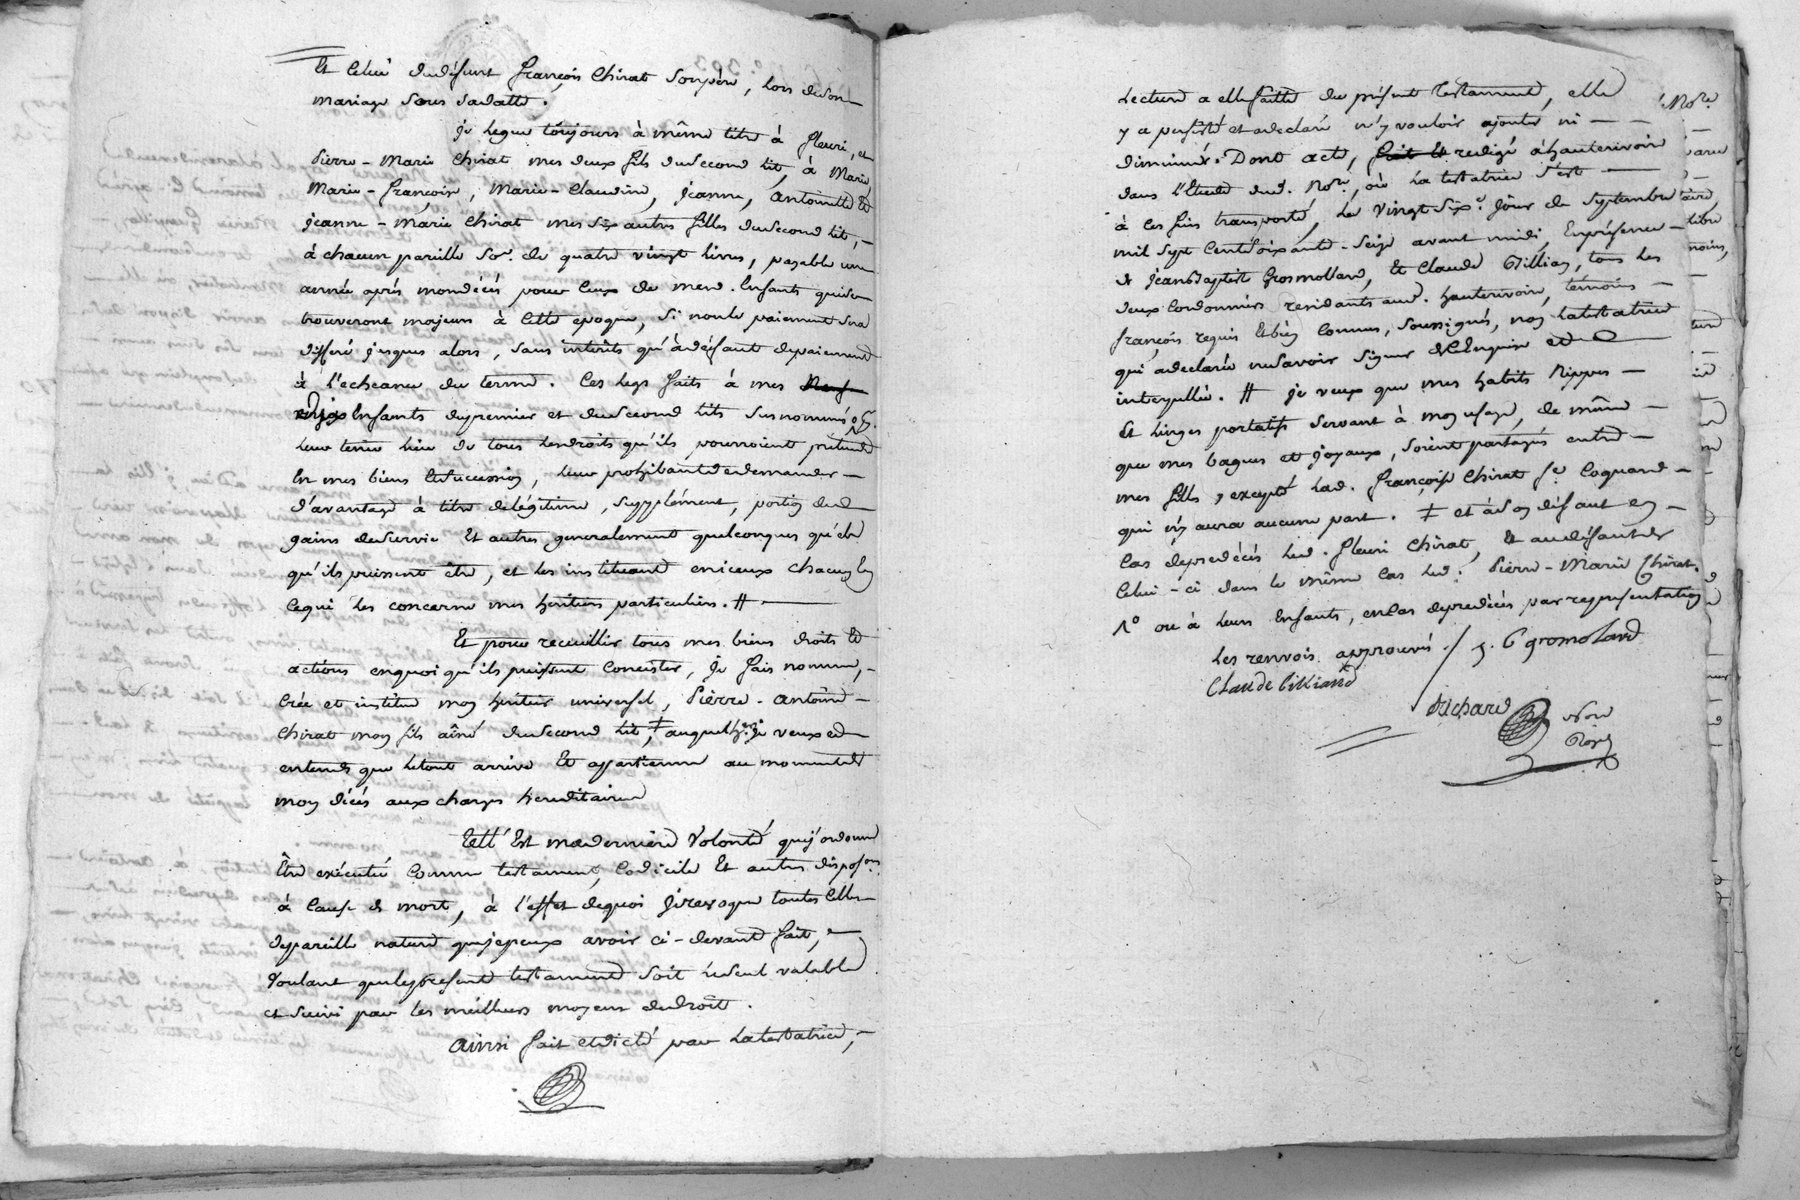 Et Celui dudéfunt françois Chirat sonpère, lors deson
mariage sous sadatte.
je legue toujours à même titre à fleuri, et
Pierre-Marie Chirat mes deux fils dusecond lit, à Marie
Marie-françoise, Marie-Claudine, jeanne, Antoinette Et
jeanne-Marie Chirat mes six autres filles dusecond lit,
à chacun pareille So.e de quatre vingt livres, payable une
année après mondécés pour Ceux de mesd. Enfants quise
trouveront majeurs à Cette époque, Si nonle paiement sera
differé jusques alors, sans interêts qu'àdéfaut depaiement
à l'echeance du terme. Ces legs faits à mes
Enfants dupremier et dusecond lits susnommés
leur tenir lieu de tous lesdroits qu'ils pourroient prétendre
En mes biens Etsuccession, leur prohibant d'endemander
d'avantage à titre delégitime, supplément, portion de
gains desurvie Et autres generalement quelconques qu'elle
qu'ils puissent être, et les instituant en iceux chacun En
cequi les concerne mes heritiers particuliers. #
Et pour recueillir tous mes biens droits Et
actions enquoi qu'ils puissent Consister, je fais nomme,
Crée et institue mon heritier universel, Pierre-Antoine
Chirat mon fils aîné dusecond lit, ‡ auquel je veux et
entends que letout arrive Et appartienne au momentde
mon décés aux charges hereditaires
Telle Est maderniere Volonté quej'ordonne
Être exécutée Comme testament, Codicile Et autre dispos.on
à Cause de mort, à l'effet dequoi jerevoque toutes Celles
depareille nature quejepeux avoir ci-devant fait,
Voulant quelepresent testament soit leseul valable
et suivi par les meilleurs moyens dudroit.
Ainsi fait etdicté par latestatrice,
Lecture a ellefaitte du présent Testament, elle
y a persisté et adeclaré n'y vouloir ajouter ni
diminuer. Dont acte, fait Et redigé àhauterivoire
dans l'Etude dud. No.re, où La testatrice s'est
à ces fins transporté, Le Vingt Six.e jour de Septembre
mil Sept Centsoixante-Seize avant midi, Enprésence
de jeanBaptiste Grosmolland, Et Claude Gillian, tous les
deux Cordonniers residants aud. hauterivoire, témoins
françois requis Etbien Connus, soussignés, non latestatrice
qui adeclaré nesavoir signer delEnquise et
interpellée. # je veux que mes habits Nippes
Et Linges portatifs servant à mon usage, de même
que mes bagues et joyaux, soient partagés entre
mes filles, excepté lad. françoise Chirat f.e Coquard
qui n'y aura aucune part. ‡ et àson défaut en
Cas depredécés led. fleuri Chirat, Et audéfautde
Celui-ci dans le même Cas led. Pierre-Marie Chirat.
ou à leurs Enfants, encas depredécés par représentation
Les renvois approuvés. j. B gromoland
Claude Gilliand
Richard
No.re
Royal